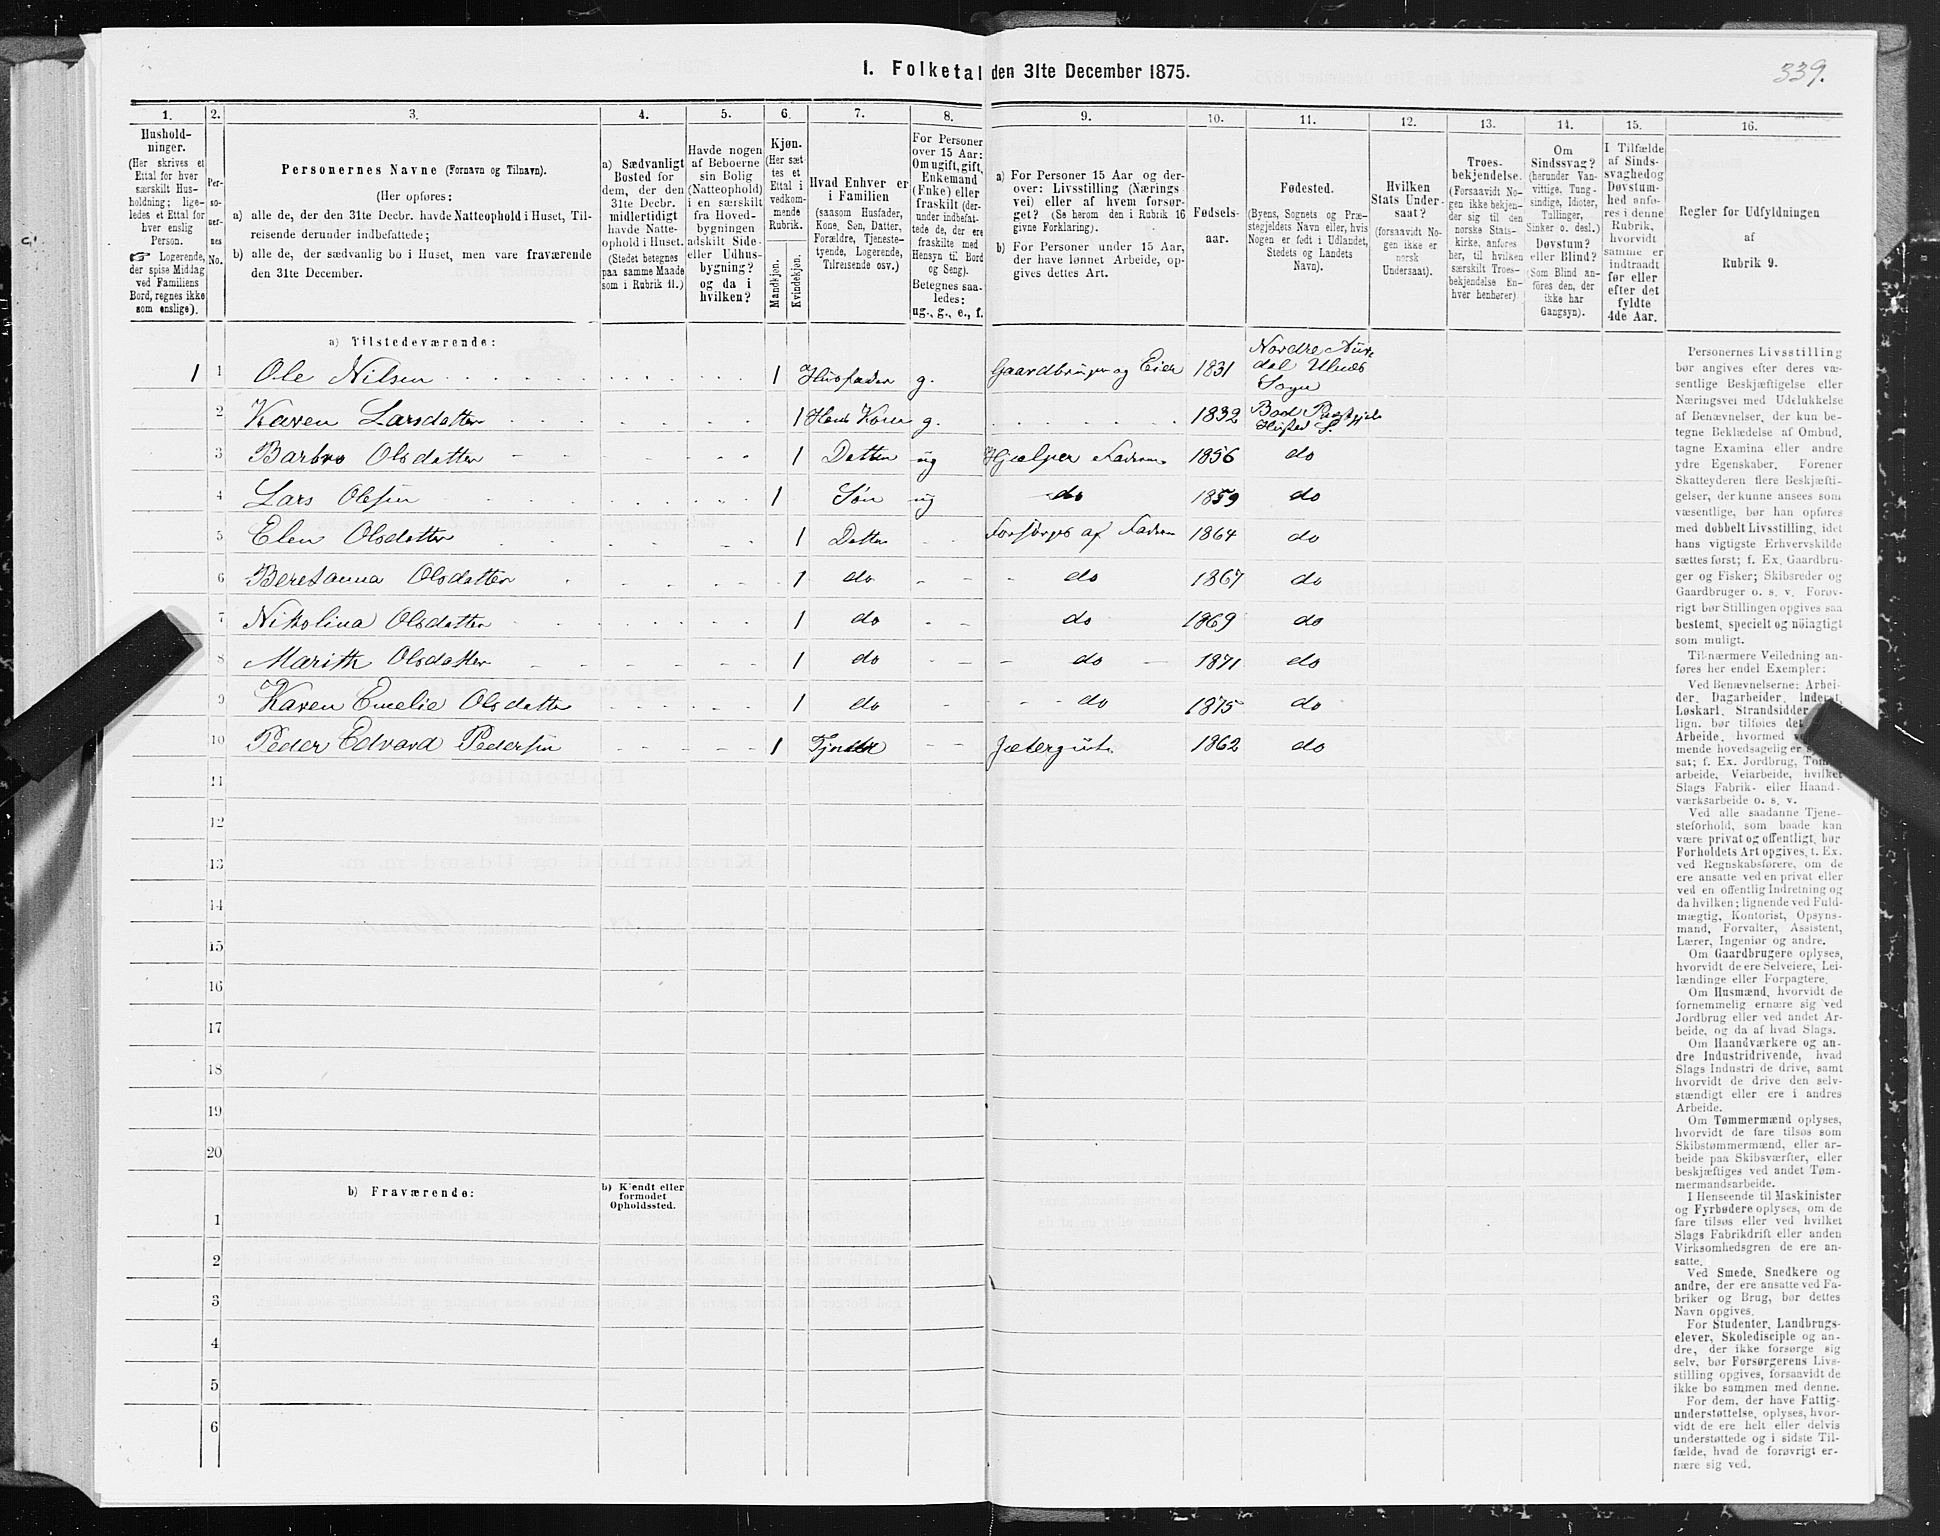 339.
1. Folketal den 31te December 1875.
1.
Hushold-
ninger.
(Her skrives et
Ettal for hver
særskilt Hus-
holdning; lige-
ledes et Ettal for
hver enslig
Person.
☞ Logerende,
der spise Middag
ved Familiens
Bord, regnes ikke
som enslige).
2.
Per-
so-
ner-
nes
No.
3.
Personernes Navne (Fornavn og Tilnavn).
(Her opføres:
a) alle de, der den 31te Decbr. havde Natteophold i Huset, Til-
reisende derunder indbefattede;
b) alle de, der sædvanlig bo i Huset, men vare fraværende
den 31te December.
4.
a) Sædvanligt
Bosted for
dem, der den
31te Decbr.
midlertidigt
havde Natte-
ophold i Huset.
(Stedet betegnes
paa samme Maade
som i Rubrik 11.)
5.
Havde nogen
af Beboerne
sin Bolig
(Natteophold)
i en særskilt
fra Hoved-
bygningen
adskilt Side-
eller Udhus-
bygning?
og da i
hvilken?
6.
Kjøn.
(Her sæt-
tes et
Ettal i
vedkom-
mende
Rubrik.
Mandkjøn.
Kvindekjøn.
7.
Hvad Enhver er
i Familien
(saasom Husfader,
Kone, Søn, Datter,
Forældre, Tjeneste-
tyende, Logerende,
Tilreisende osv.)
8.
For Personer
over 15 Aar:
Om ugift, gift,
Enkemand
(Enke) eller
fraskilt (der-
under indbefat-
tede de, der ere
fraskilte med
Hensyn til Bord
og Seng).
Betegnes saa-
ledes:
ug., g., e., f.
9.
a) For Personer 15 Aar og der-
over: Livsstilling (Nærings
vei) eller af hvem forsør-
get? (Se herom den i Rubrik 16
givne Forklaring).
b) For Personer under 15 Aar,
der have lønnet Arbeide, op-
gives dettes Art.
10.
Fødsels-
aar.
11.
Fødested.
(Byens, Sognets og Præ-
stegjeldets Navn eller, hvis
Nogen er født i Udlandet,
Stedets og Landets
Navn).
12.
Hvilken
Stats Under-
saat?
(forsaavidt No-
gen ikke er
norsk
Undersaat).
13.
Troes-
bekjendelse.
(Forsaavidt No-
gen ikke bekjen-
der sig til den
norske Stats-
kirke, anføres
her, til hvilken
særskilt Troes-
bekjendelse En-
hver henhører).
14.
Om
Sindssvag?
(herunder Van-
vittige, Tung-
sindige, Idioter,
Tullinger,
Sinker o. desl.)
Døvstum?
eller Blind?
(Som Blind an-
føres den, der
ikke har
Gangsyn).
15.
I Tilfælde
af Sinds-
svaghed og
Døvstum-
hed anfø-
res i denne
Rubrik,
hvorvidt
samme er
indtraadt
før eller
efter det
fyldte
4de Aar.
16.
Regler for Udfyldningen
af
Rubrik 9.
a) Tilstedeværende:
1 1 Ole Nilsen 1 Husfader g. Gaardbruger og Eier 1831 Nordre Aur-
dal Ulnes
Sogn
2 Karen Larsdatter 1 Hans Kone g. 1832 Bod
Husted S.
3 Barbro Olsdatter 1 Datter ug Hjælper Faderen 1856 do
4 Lars Olsen 1 Søn ug do 1859 do
5 Elen Olsdatter 1 Datter Forsørges af Faderen 1864 do
6 Beretanna Olsdatter 1 do do 1867 do
7 Nikolina Olsdatter 1 do do 1869 do
8 Marith Olsdatter 1 do do 1871 do
9 Karen Emelie Olsdatter 1 do do 1875 do
10 Peder Edvard Pedersen 1 Jætergut 1862 do
11
12
13
14
15
16
17
18
19
20
b) Fraværende:
b) Kjendt eller
formodet
Opholdssted.
1
2
3
4
5
6
Personernes Livsstilling
bør angives efter deres væ-
sentlige Beskjæftigelse eller
Næringsvei med Udelukkelse
af Benævnelser, der kun be-
tegne Beklædelse af Ombud,
tagne Examina eller andre
ydre Egenskaber. Forener
Skatteyderen flere Beskjæfti-
gelser, der kunne ansees som
væsentlige, bør han opføres
med dobbelt Livsstilling, idet
hans vigtigste Erhvervskilde
sættes først; f. Ex. Gaardbru-
ger og Fisker; Skibsreder og
Gaardbruger o. s. v. Forøv-
rigt bør Stillingen opgives saa
bestemt, specielt og nøiagtigt
som muligt.
Til nærmere Veiledning an-
føres her endel Exempler:
Ved Benævnelserne: Arbei-
der, Dagarbeider, Inderst,
Løskarl, Strandsidder
lign. bør tilføies det
Arbeide, hvormed
mende hovedsagelig er
sat; f. Ex. Jordbrug, Tom-
arbeide, Veiarbeide, hvilket
Slags Fabrik- eller Haand-
værksarbeide o. s. v.
Ved alle saadanne Tjene-
steforhold, som baade kan
være privat og offentligt, bør
Forholdets Art opgives, t. Ex.
ved Regnskabsførere, om de
ere ansatte ved en privat eller
ved en offentlig Indretning og
da hvilken; lignende ved Fuld-
mægtig, Kontorist, Opsyns-
mand, Forvalter, Assistent,
Lærer, Ingeniør og andre.
Om Gaardbrugere oplyses,
hvorvidt de ere Selveiere, Lei-
lændinge eller Forpagtere.
Om Husmænd, hvorvidt de
fornemmelig ernære sig ved
Jordbrug eller ved andet Ar-
beide, og da af hvad Slags.
Om Haandværkere og an-
dre Industridrivende, hvad
Slags Industri de drive, samt
hvorvidt de drive den selv-
stændigt eller ere i andres
Arbeide.
Om Tømmermænd oplyses,
hvorvidt de fare tilsøs som
Skibstømmermænd, eller ar-
beide paa Skibsværfter, eller
beskjæftiges ved andet Tøm-
mermandsarbeide.
I Henseende til Maskinister
og Fyrbødere oplyses, om de
fare tilsøs eller ved hvilket
Slags Fabrikdrift eller anden
Virksomhedsgren de ere an-
satte.
Ved Smede, Snedkere og
andre, der ere ansatte ved Fa-
briker og Brug, bør dettes
Navn opgives.
For Studenter, Landbrugs-
elever, Skoledisciple og an-
dre, der ikke forsørge sig
selv, bør Forsørgerens Livs-
stilling opgives, forsaavidt de
ikke bo sammen med denne.
For dem, der have Fattig-
understøttelse, oplyses, hvor-
vidt de ere helt eller delvis
understøttede og i sidste Til-
fælde, hvad de forøvrigt er-
nære sig ved.